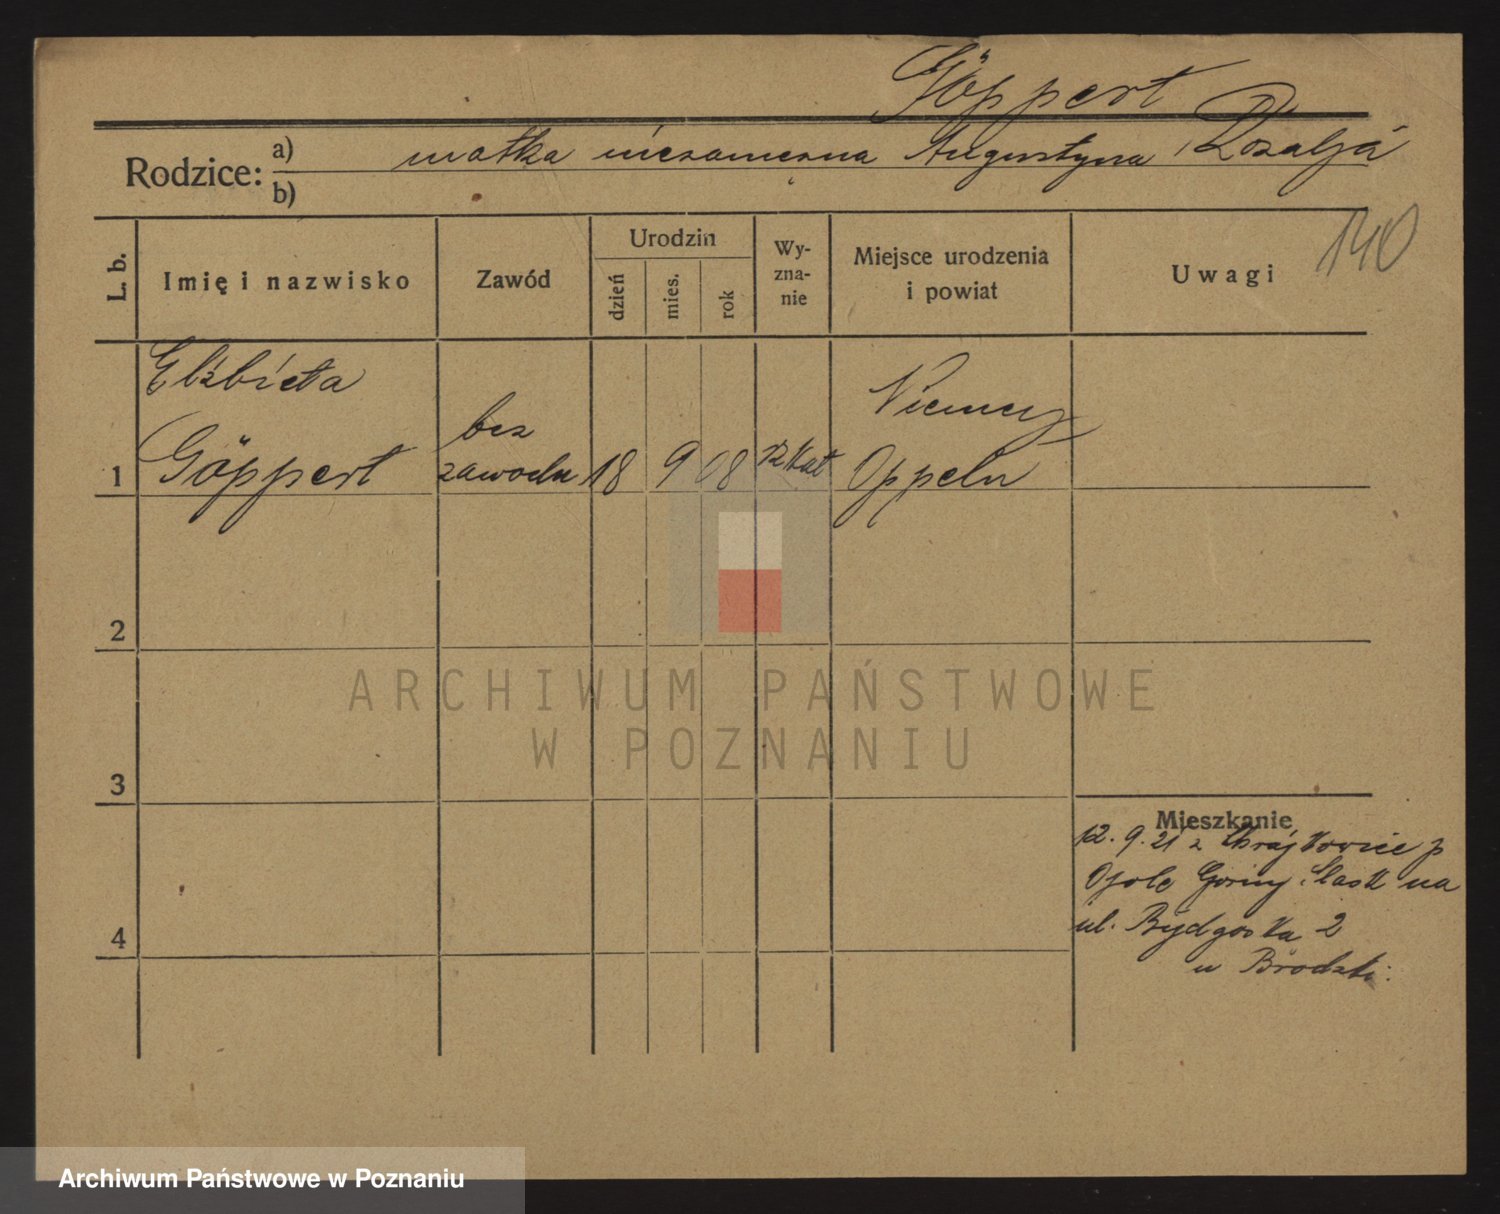 Göppert
Rodzice: a) matka niezamezna Augustyna, Rozalja
b)
140
L. b.
Imię i nazwisko
Zawód
Urodzin
dzień
mies.
rok
Wy-
zna-
nie
Miejsce urodzenia
i powiat
Uwagi
Elżbieta
Göppert
bez
zawodu
18
9
08
rz kat
Niemcy
Oppeln
1
2
3
4
Mieszkanie
12. 9. 21 z p
Opole Górny Śląsk na
ul. Bydgoska 2
u Brodzki.
ARCHIWUM PAŃSTWOWE
W POZNANIU
Archiwum Państwowe w Poznaniu